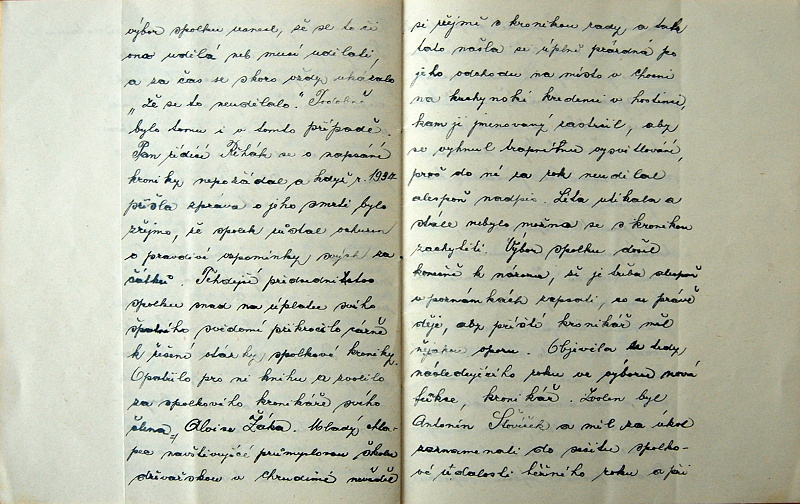 výbor spolku usnesl, že se to či
ono udělá neb musí udělati,
a za čas se skoro vždy ukázalo
„že se to neudělalo". Podobně
bylo tomu i v tomto případě.
Pan řídící Řihák se o napsání
kroniky nepožádal a když r. 1934
přišla zpráva o jeho smrti bylo
zřejmo, že spolek zůstal ochuzen
o pravdivé vzpomínky svých za-
čátků. Tehdejší předsednictvo
spolku snad na úplatu svého
špatného svědomí přikročilo vážně
k řešení otázky spolkové kroniky.
Opatřilo pro ni knihu a zvolilo
za spolkového kronikáře svého
člena, Aloise Žáka. Mladý chla-
pec navštěvující průmyslovou školu
dřevařskou v Chrudimi nevěděl
si zřejmě s kronikou rady a tak
tato našla se úplně prázdná po
jeho odchodu na místo v
na kuchyňské kredenci v hostinci,
kam ji jmenovaný zastrčil, aby
se vyhnul trapnému vysvětlování,
proč do ní za rok neudělal
alespoň nadpis. Léta utíkala a
stále nebylo možno se s kronikou
zachytiti. Výbor spolku došel
konečně k názoru, že je třeba alespoň
v poznámkách zapsati, co se právě
děje, aby příští kronikář měl
nějakou oporu. Objevila se tedy
následujícího roku ve výboru nová
funkce, kronikář. Zvolen byl
Antonín Slavíček a měl za úkol
zaznamenati do sešitu spolko-
vé události běžného roku a při